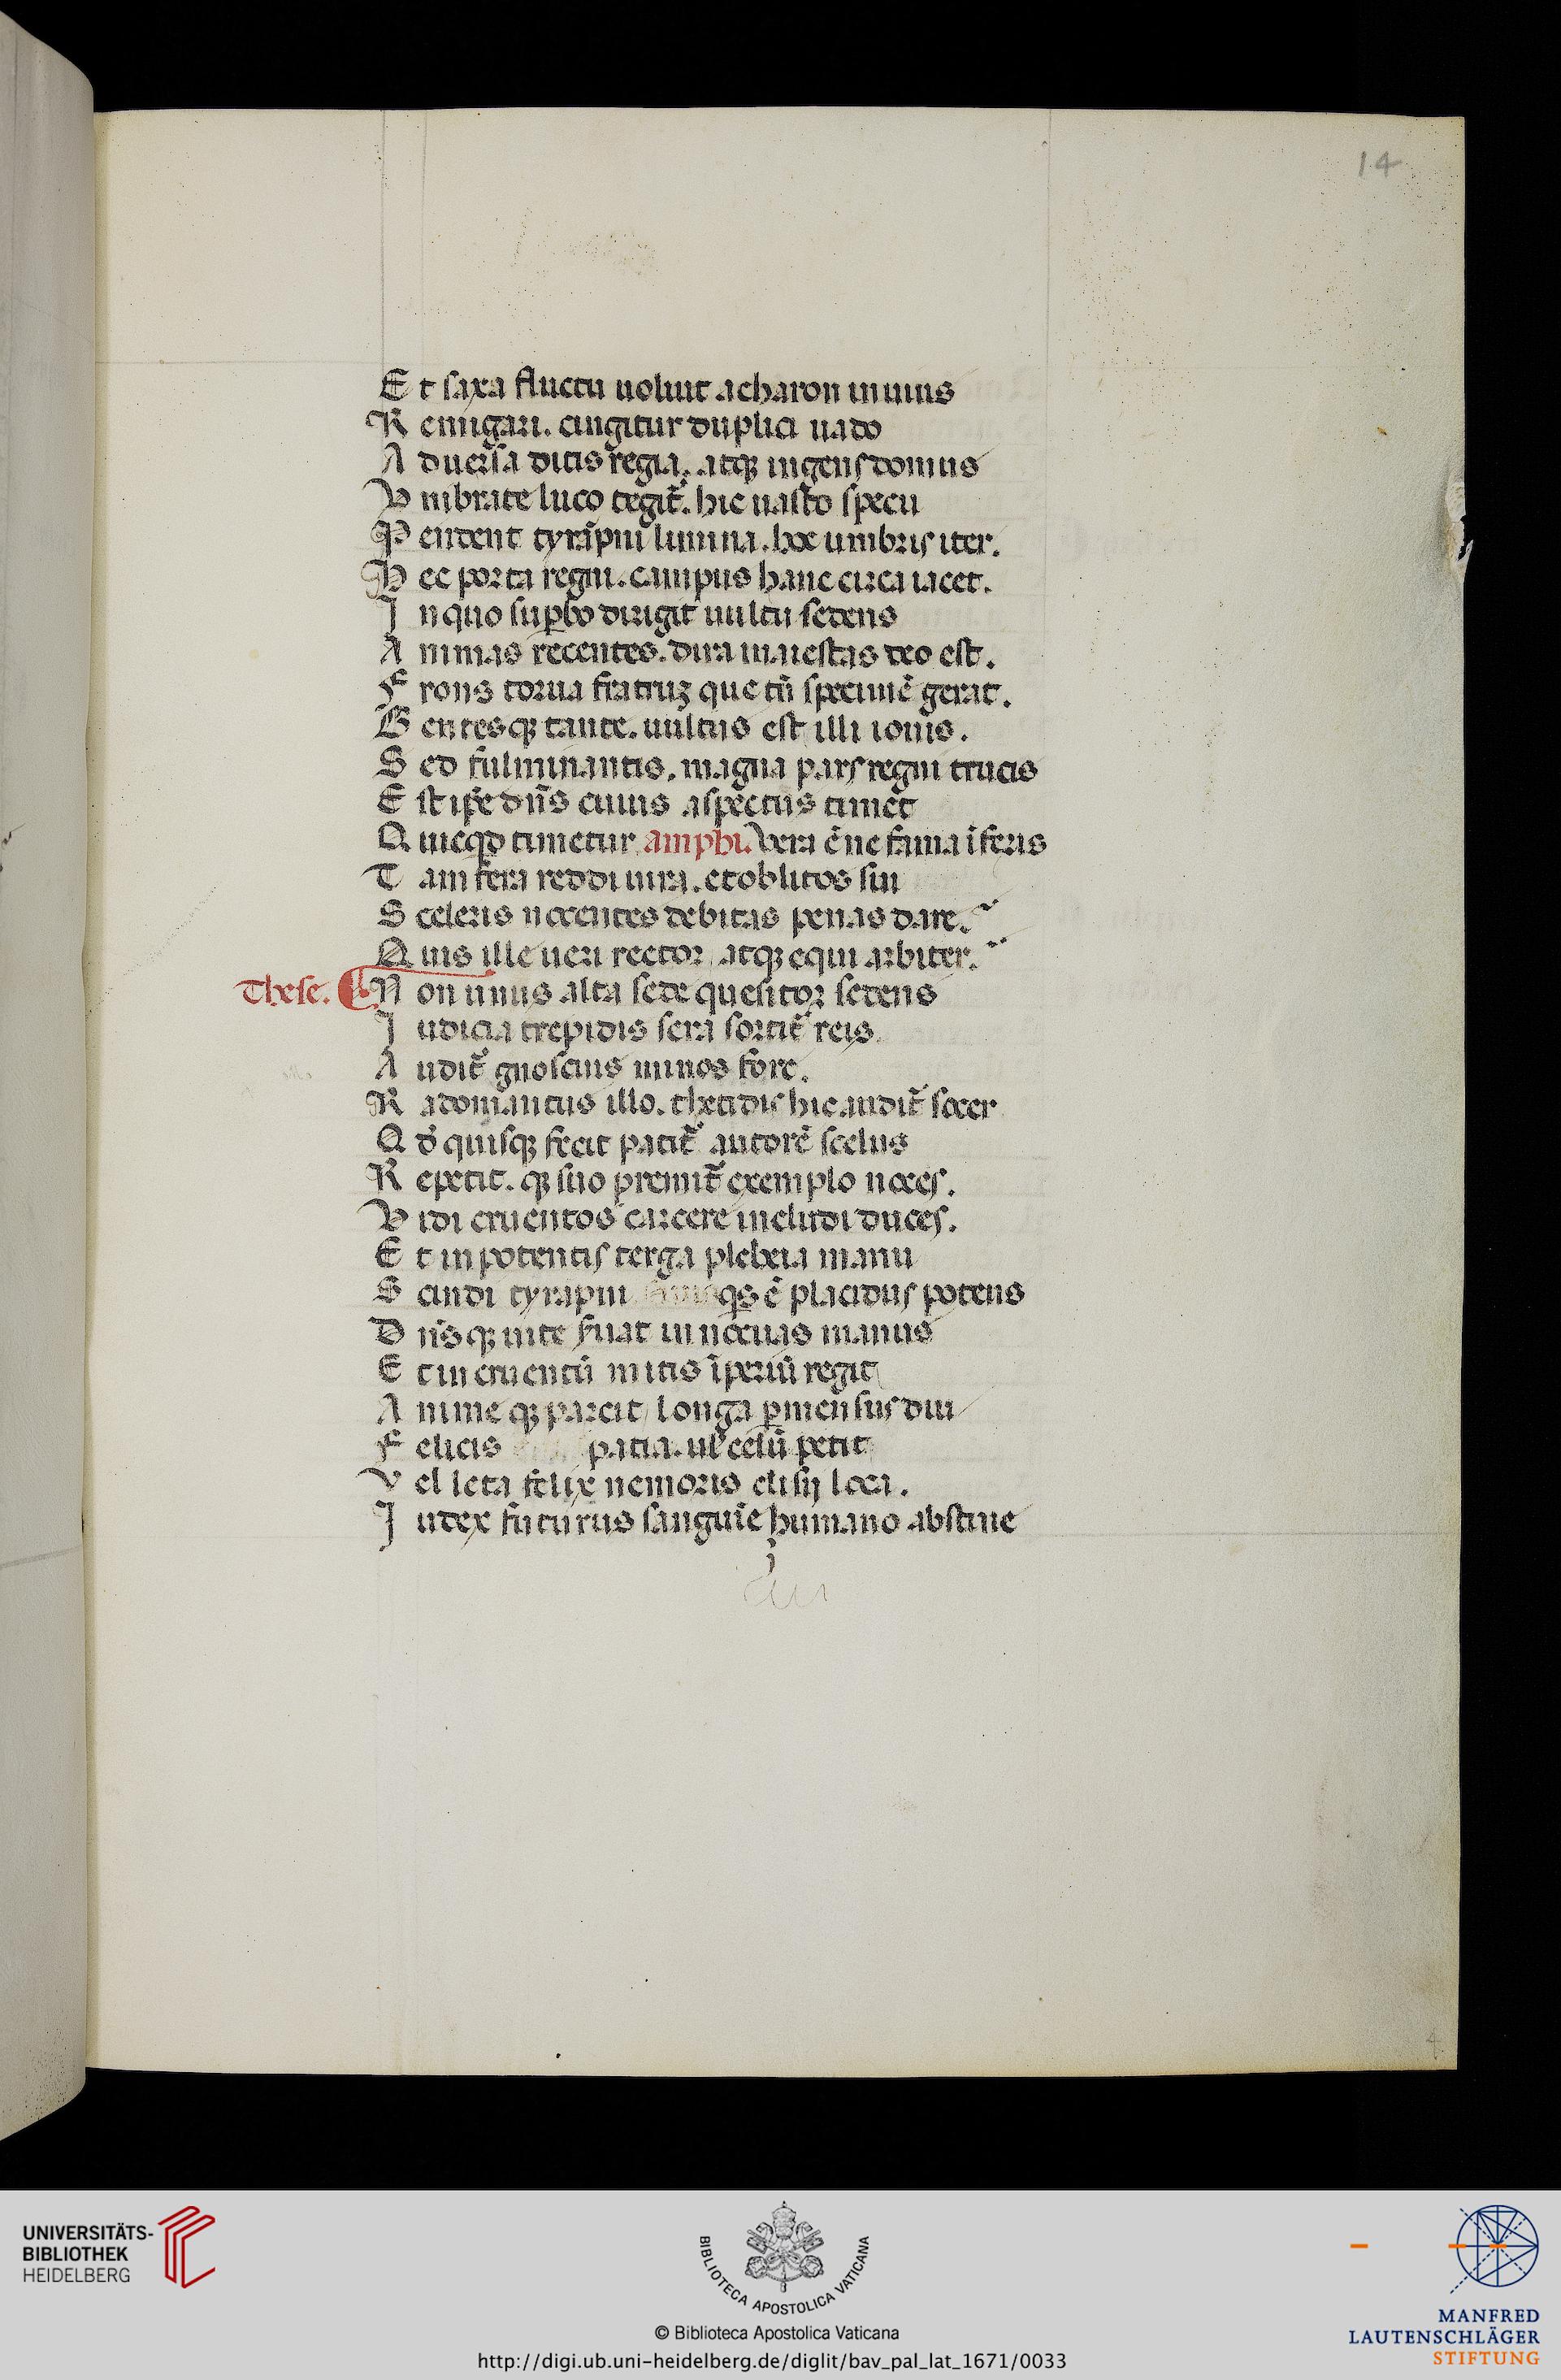 14
Et saxa fluctu voluit acharon inuius
Remigari. cingitur duplici uado
Aduersa ditis regia. atqꝫ ingens domus
Vmbrate luco tegit᷑. hic uasto specu
Pendent tyrãpni limina. hoc umbris iter.
Hec porta regni. campus hanc circa iacet.
In quo suꝑbo dirigit uultu sedens
Animas recentes. dira maiestas deo est.
Frons torua fratruꝫ que tñ specimẽ gerat.
Gentesqꝫ tante. uultus est illi iouis.
Sed fulminantis. magna pars regni trucis
Est ip̃e dñs cuius aspectus timet
Quicqͥd timetur amphi. Vera ẽ ne fama ĩferis
Tam fera reddi iura. et oblitos sui
Sceleris nocentes debitas penas dare.
Quis ille ueri rector atqꝫ equi arbiter.
These. Non unus alta sede quesitor sedens
Iudicia trepidis sera sortit᷑ reis.
Audit᷑ gnoscius minos fore.
Radomantus illo. thetidis hic audit᷑ socer
Qđ quisqꝫ fecit patit᷑ autorẽ scelus
Repetit. qꝫ suo premit᷑ exemplo noces.
Vidi cruentos carcere includi duces.
Et inpotentis terga plebeia manu
Scindi tyrapni qͥs ẽ placidus potens
Dñsqꝫ uite suat innocuas manus
Et incruentũ mitis ĩperiũ regit
Animeqꝫ parcit longa ꝑmensus diu
Felicis patia. ul̛ celũ petit
Vel leta felix nemoris elisij loca.
Iudex futurus sanguĩe humano abstine
4
UNIVERSITÄTS-
BIBLIOTHEK
HEIDELBERG
BIBLIOTECA APOSTOLICA VATICANA
© Biblioteca Apostolica Vaticana
http://digi.ub.uni-heidelberg.de/diglit/bav_pal_lat_1671/0033
MANFRED
LAUTENSCHLÄGER
STIFTUNG